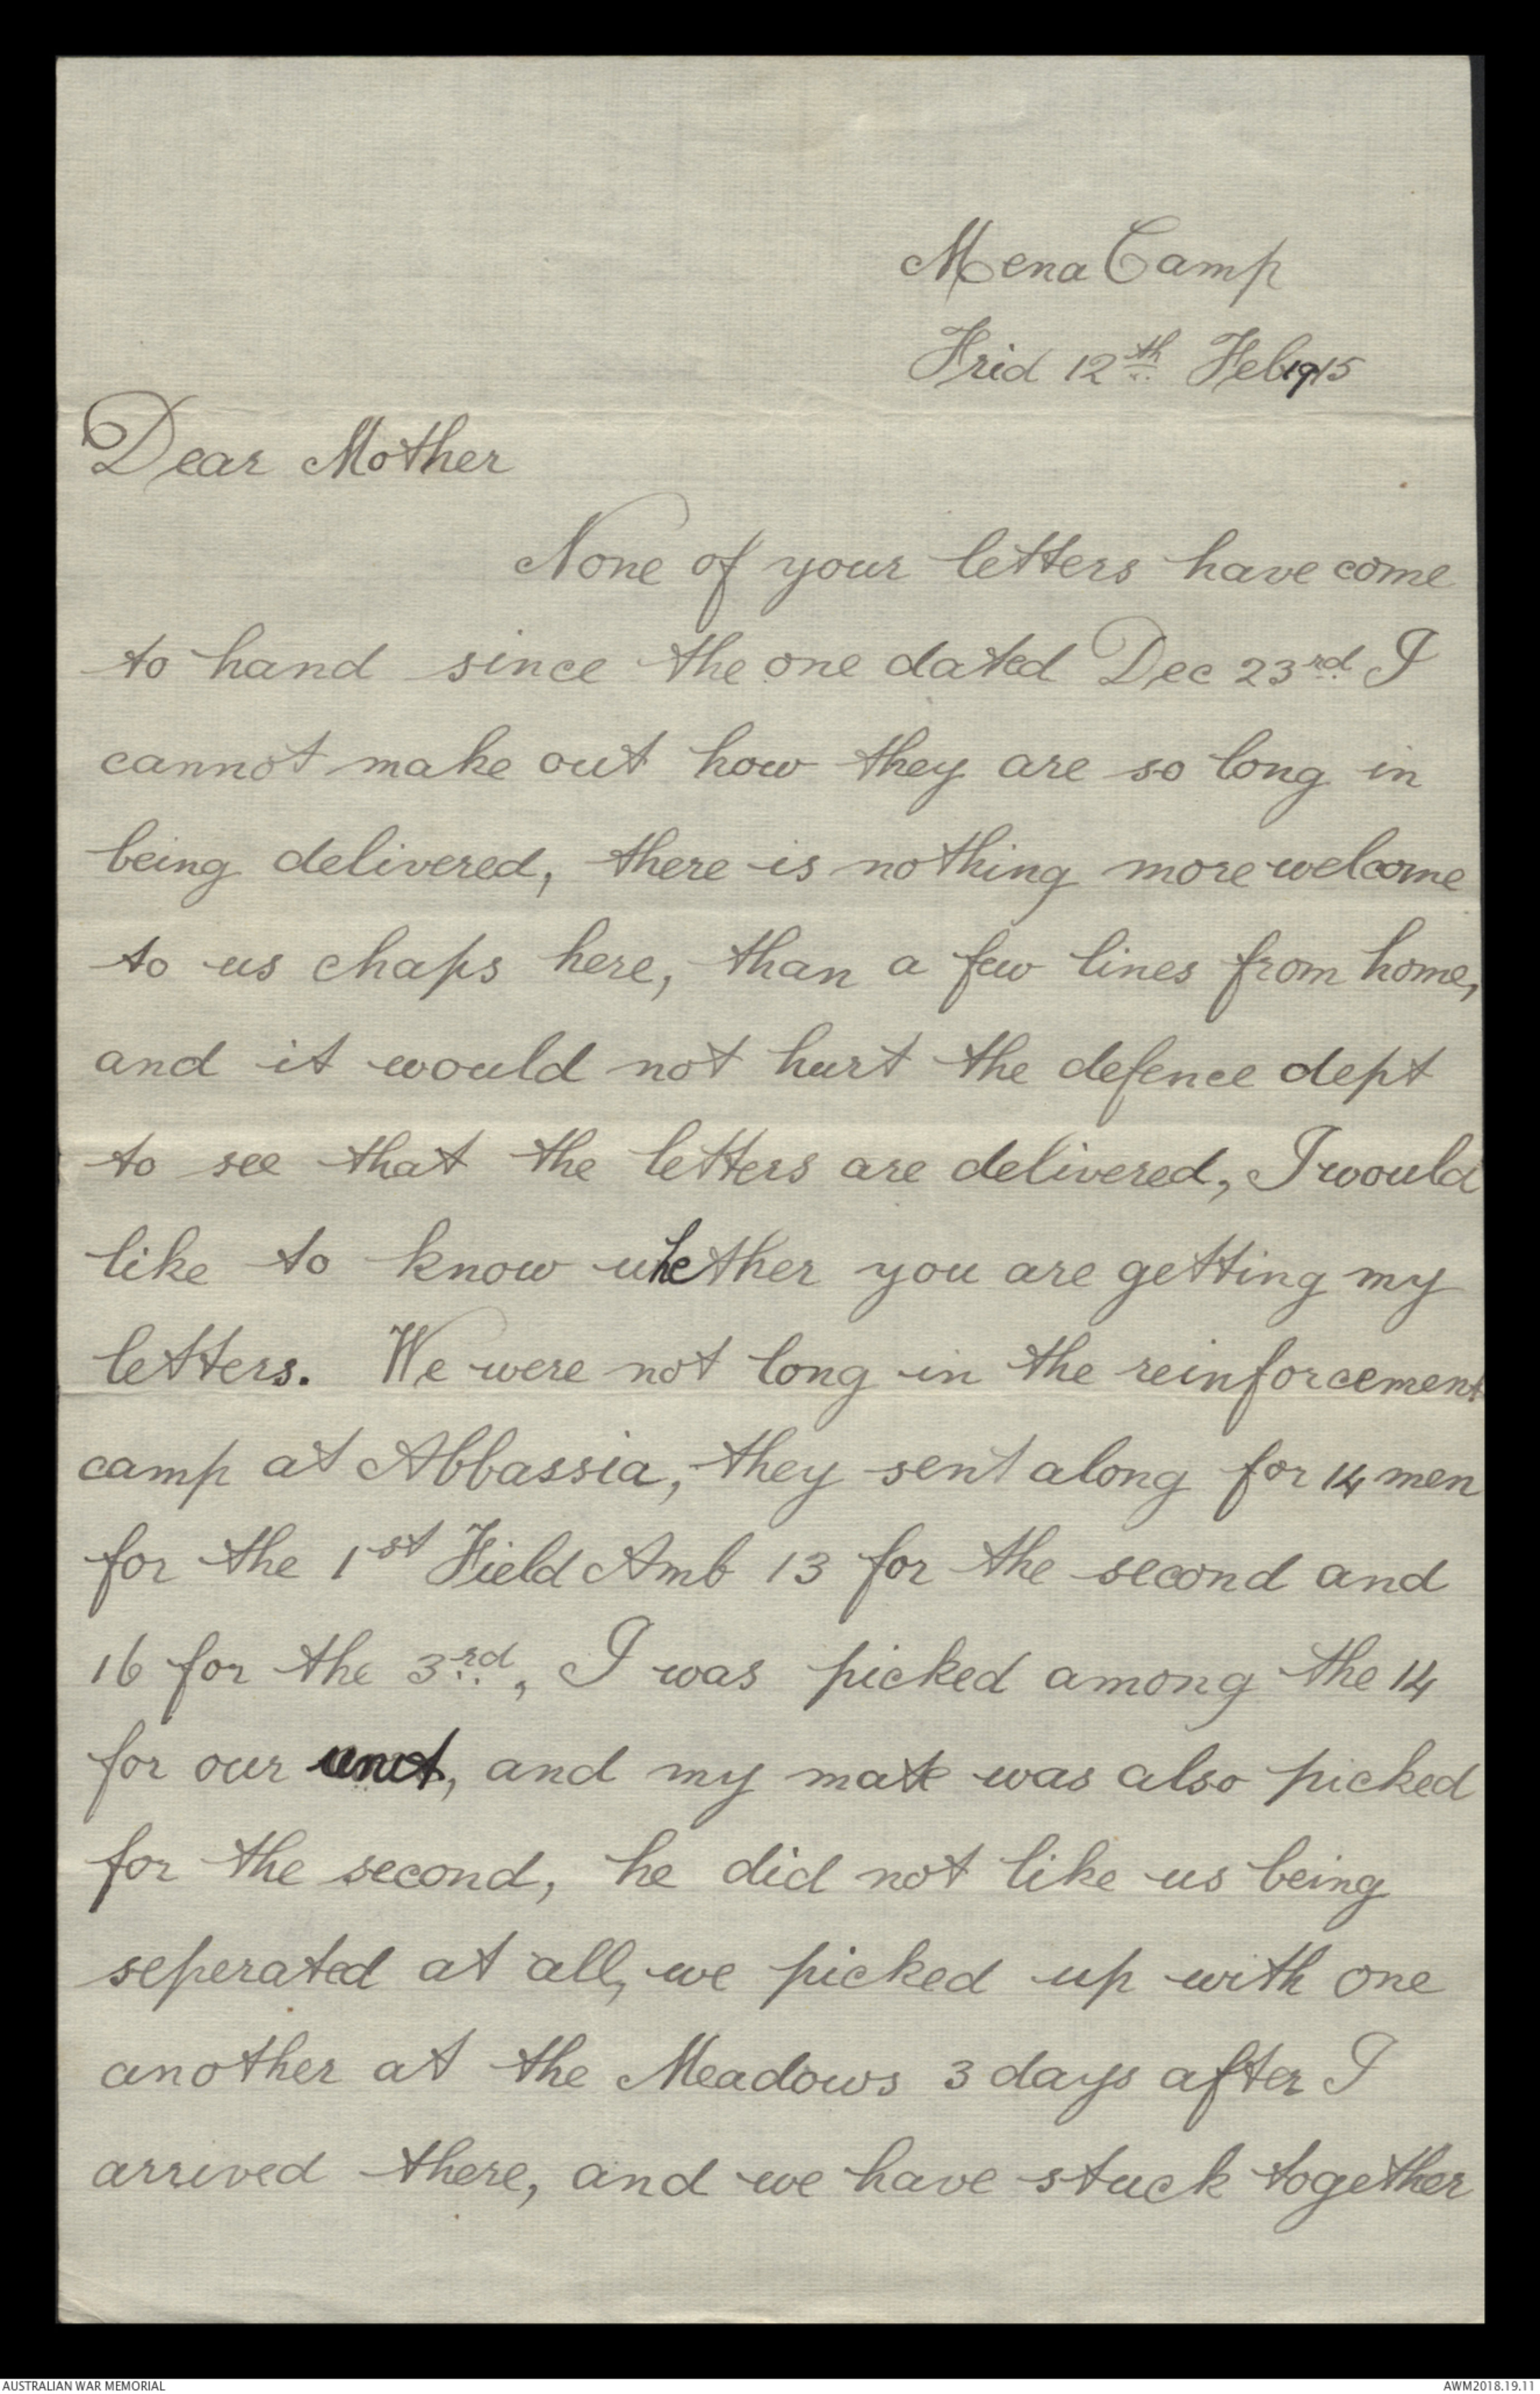 Mena Camp
Frid 12th Feb 1915
Dear Mother
None of your letters have come
to hand since the one dated Dec 23rd I
cannot make out how they are so long in
being delivered, there is nothing more welcome
to us chaps here, than a few lines from home,
and it would not hurt the defence dept
to see that the letters are delivered, I would
like to know whether you are getting my
letters. We were not long in the reinforcement
camp at Abbassia, they sent along for 14 men
for the 1st Field Amb 13 for the second and
16 for the 3rd, I was picked among the 14
for our unit, and my mate was also picked
for the second, he did not like us being
seperated at all, we picked up with one
another at the Meadows 3 days after I
arrived there, and we have stuck together
AUSTRALIAN WAR MEMORIAL
AWM2018.19.11